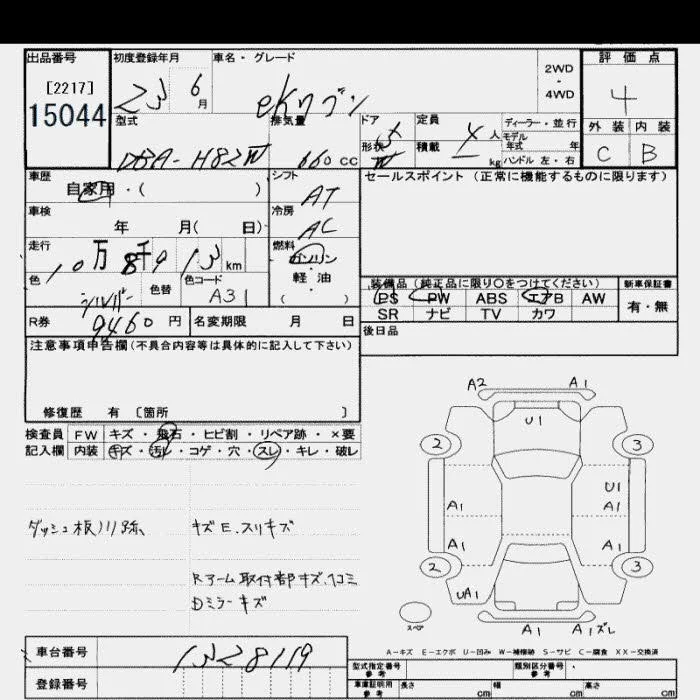 出品番号 初度登録年月 車名・グレード 評価点
[2217] 2WD
15044 23 6月 eKワゴン - 4
4WD
型式 排気量 ドア 5 定員 4人 ディーラー・並行 外装 内装
形状 積載 kg モデル年式 年 C B
DBA-H82W 660cc W ハンドル 左・右
車歴 シフト セールスポイント(正常に機能するものに限ります)
自家用・( ) AT
車検 冷房
年 月( 日) AC
走行 10万8千913km 燃料
ガソリン
色 色替 色コード 軽油
シルバー A31 ( ・ ) 装備品(純正品に限り○をつけてください) 新車保証書
PS PW ABS エアB AW 有・無
R券 9460円 名変期限 月 日 SR ナビ TV カワ
注意事項申告欄(不具合内容等は具体的に記入して下さい) 後日品
修復歴 有 〔箇所 〕
検査員 FW キズ・飛石・ヒビ割・リペア跡・×要
記入欄 内装 キズ・汚レ・コゲ・穴・スレ・キレ・破レ
A2 A1
U1
2 3
U1
A1 A1
ダッシュ板ノリ跡、 キズE、スリキズ
A1 A1
2 3
Rアーム取付部キズ、凹ミ
UA1
Dミラーキズ
スペア
A1 A1ズレ
A-キズ E-エクボ U-凹み W-補修跡 S-サビ C-腐食 XX-交換済
車台番号 1328119
型式指定番号 参考 類別区分番号 参考
登録番号 車庫証明用 参考 長さ cm 幅 cm 高さ cm